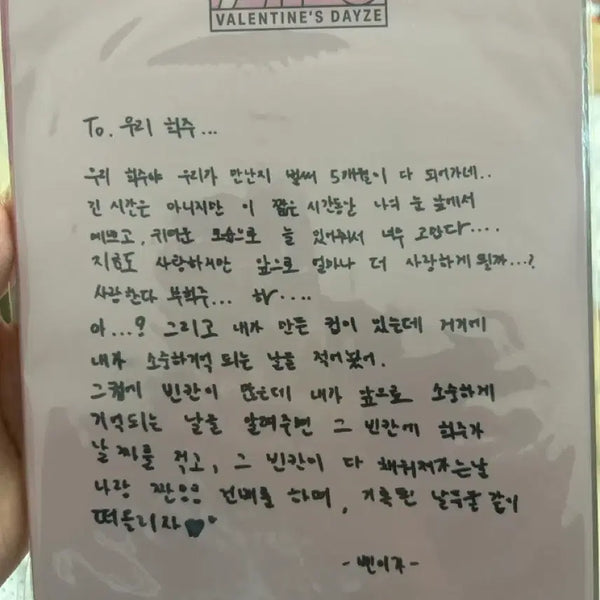 VALENTINE'S DAYZE
To. 우리 희주...
우리 희주야 우리가 만난지 벌써 5개월이 다 되어가네..
긴 시간은 아니지만 이 짧은 시간동안 나의 눈 앞에서
예쁘고, 귀여운 모습으로 늘 있어줘서 너무 고맙다....
지효도 사랑하지만 앞으로 얼마나 더 사랑하게 될까...?
사랑한다 부희주... 하....
아...? 그리고 내가 만든 컵이 있는데 거기에
내가 소중하게 기억되는 날을 적어놨어.
그컵에 빈칸이 많은데 내가 앞으로 소중하게
기억되는 날을 알려주면 그 빈칸에 희주가
날짜를 적고, 그 빈칸이 다 채워져가는날
나랑 짠 건배를 하며, 기록된 날들을 같이
떠들리자
-빈이가-